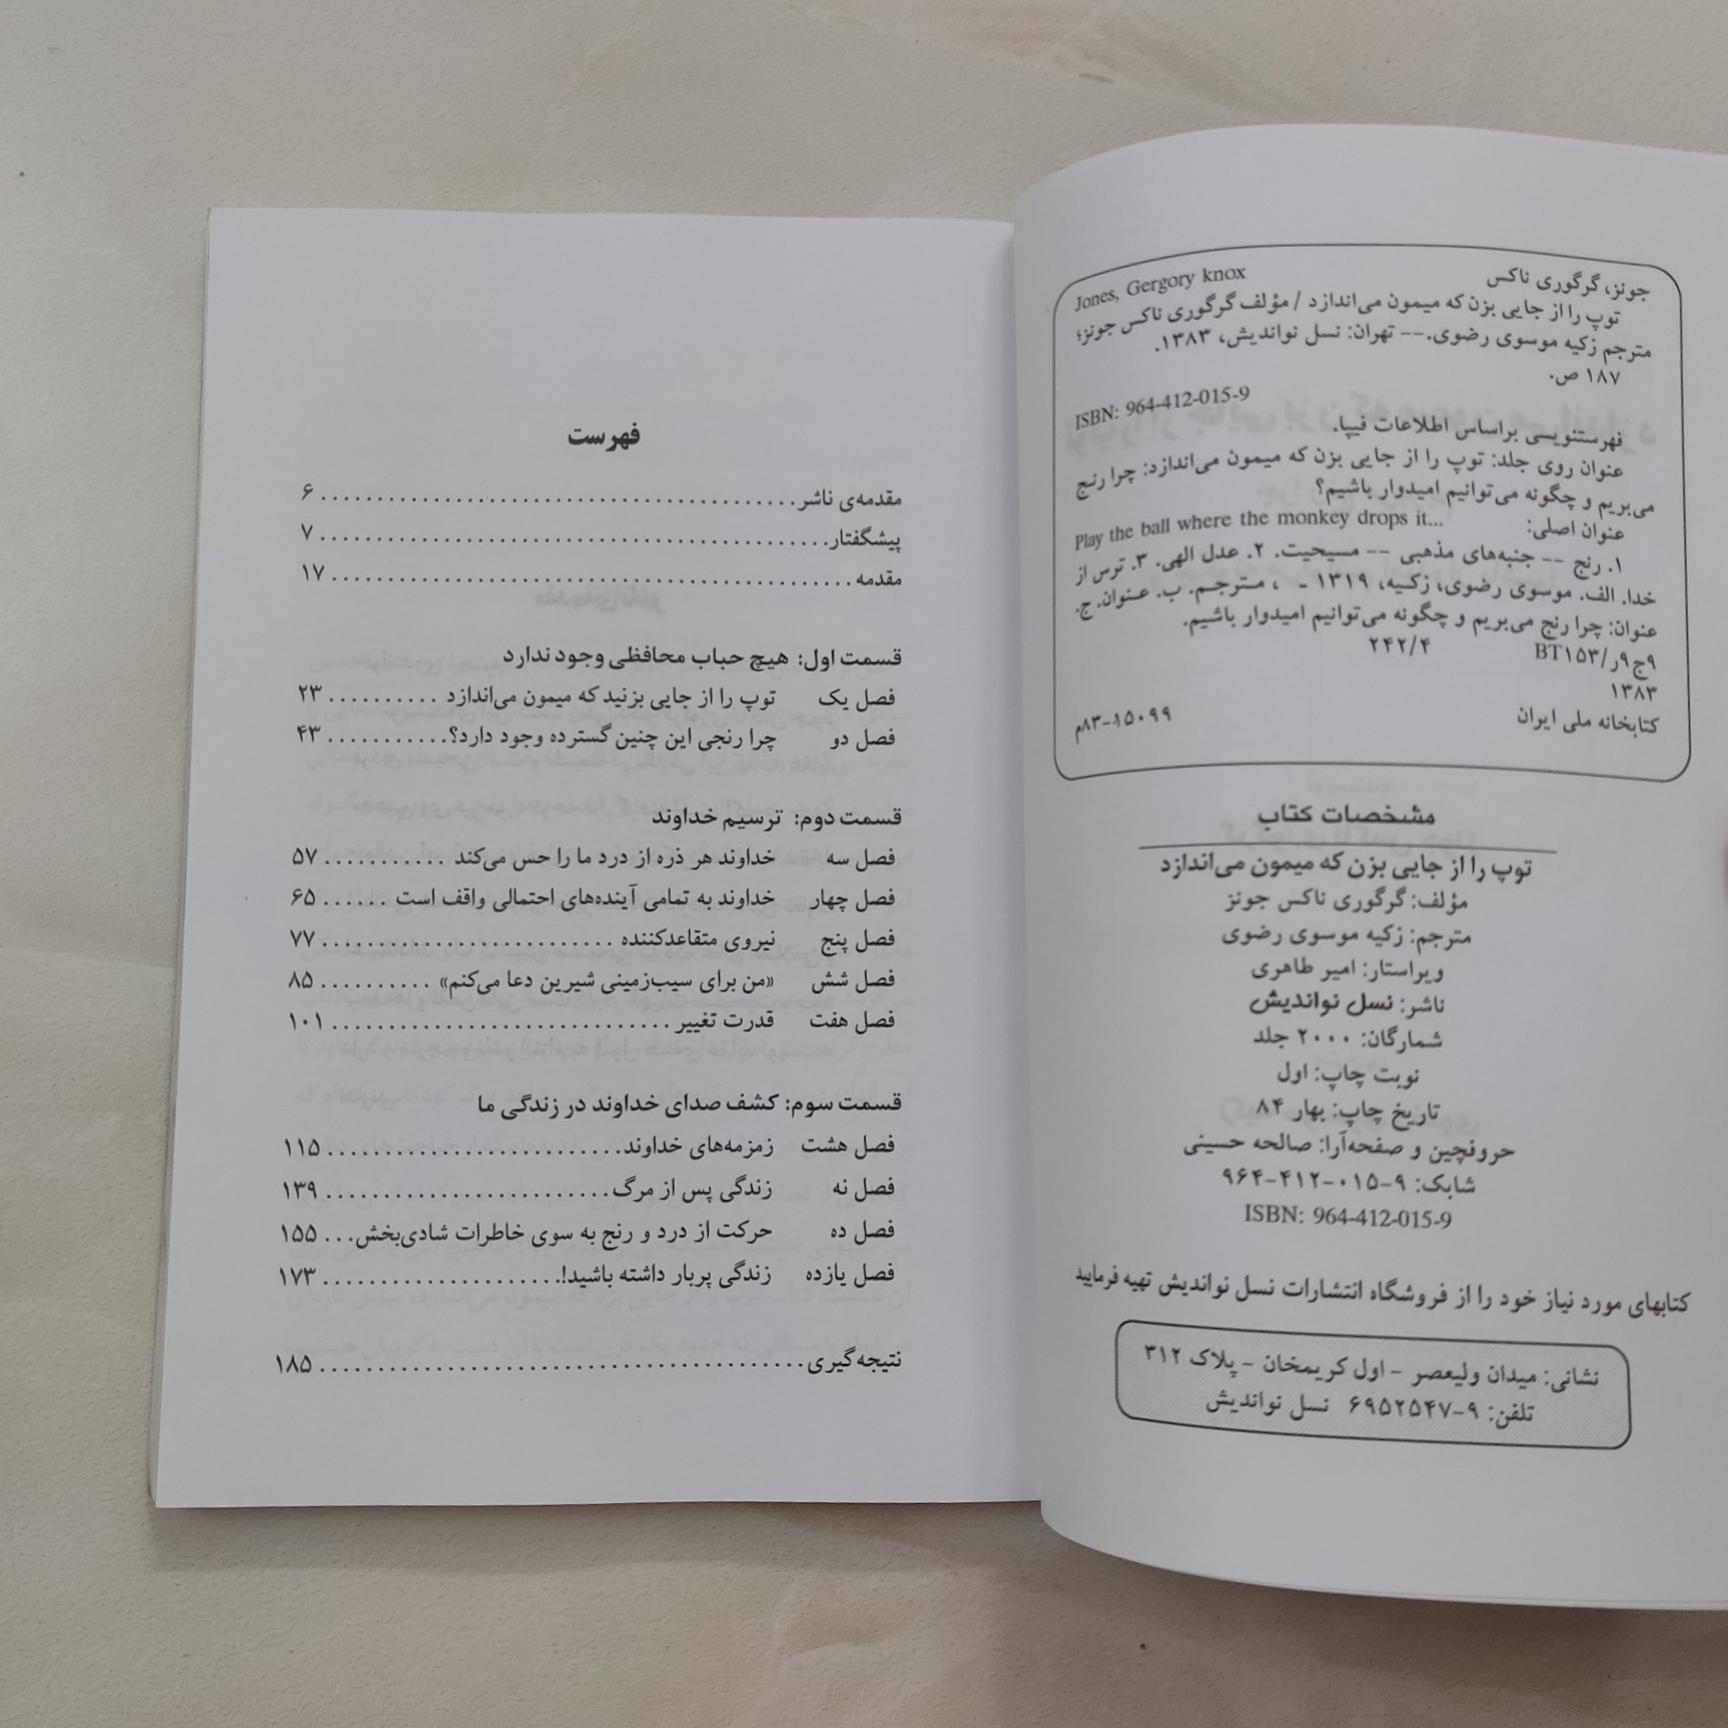 جونز، گرگوری ناکس Jones, Gergory knox
توپ را از جایی بزن که میمون می‌اندازد / مؤلف گرگوری ناکس جونز؛
مترجم زکیه موسوی رضوی.-- تهران: نسل نواندیش، ۱۳۸۳.
۱۸۷ ص.
ISBN: 964-412-015-9
فهرستنویسی براساس اطلاعات فیپا.
عنوان روی جلد: توپ را از جایی بزن که میمون می‌اندازد: چرا رنج
می‌بریم و چگونه می‌توانیم امیدوار باشیم؟
عنوان اصلی: Play the ball where the monkey drops it...
۱. رنج -- جنبه‌های مذهبی -- مسیحیت. ۲. عدل الهی. ۳. ترس از
خدا. الف. موسوی رضوی، زکیه، ۱۳۱۹ - ، مترجم. ب. عنوان. ج.
عنوان: چرا رنج می‌بریم و چگونه می‌توانیم امیدوار باشیم.
۹ج۹ر/BT۱۵۳ ۲۴۲/۴
۱۳۸۳
کتابخانه ملی ایران ۱۵۰۹۹-۸۳م
مشخصات کتاب
توپ را از جایی بزن که میمون می‌اندازد
مؤلف: گرگوری ناکس جونز
مترجم: زکیه موسوی رضوی
ویراستار: امیر طاهری
ناشر: نسل نواندیش
شمارگان: ۲۰۰۰ جلد
نوبت چاپ: اول
تاریخ چاپ: بهار ۸۴
حروفچین و صفحه‌آرا: صالحه حسینی
شابک: ۹-۰۱۵-۴۱۲-۹۶۴
ISBN: 964-412-015-9
کتابهای مورد نیاز خود را از فروشگاه انتشارات نسل نواندیش تهیه فرمایید
نشانی: میدان ولیعصر - اول کریمخان - پلاک ۳۱۲
تلفن: ۹-۶۹۵۲۵۴۷ نسل نواندیش
فهرست
مقدمه‌ی ناشر........................................... ۶
پیشگفتار.............................................. ۷
مقدمه............................................... ۱۷
قسمت اول: هیچ حباب محافظی وجود ندارد
فصل یک توپ را از جایی بزنید که میمون می‌اندازد .......... ۲۳
فصل دو چرا رنجی این چنین گسترده وجود دارد؟........... ۴۳
قسمت دوم: ترسیم خداوند
فصل سه خداوند هر ذره از درد ما را حس می‌کند ........... ۵۷
فصل چهار خداوند به تمامی آینده‌های احتمالی واقف است ...... ۶۵
فصل پنج نیروی متقاعدکننده .......................... ۷۷
فصل شش «من برای سیب‌زمینی شیرین دعا می‌کنم» .......... ۸۵
فصل هفت قدرت تغییر............................... ۱۰۱
قسمت سوم: کشف صدای خداوند در زندگی ما
فصل هشت زمزمه‌های خداوند........................... ۱۱۵
فصل نه زندگی پس از مرگ.......................... ۱۳۹
فصل ده حرکت از درد و رنج به سوی خاطرات شادی‌بخش... ۱۵۵
فصل یازده زندگی پربار داشته باشید!...................... ۱۷۳
نتیجه‌گیری............................................ ۱۸۵